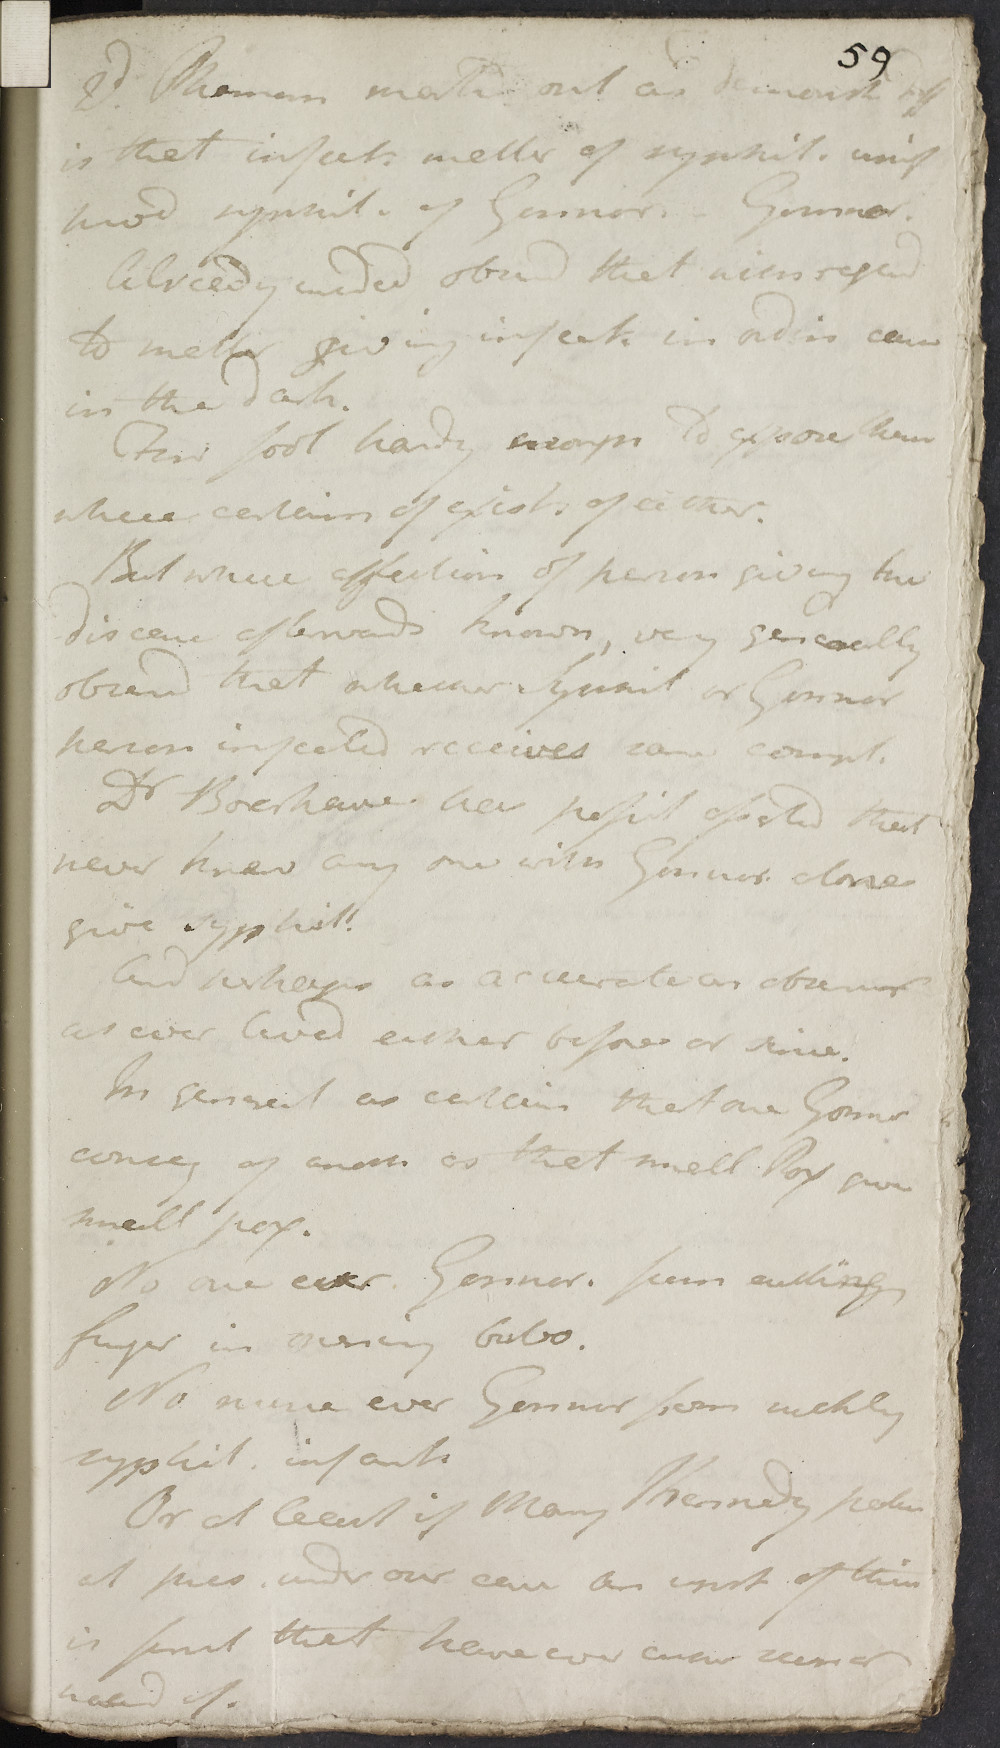 59
2d. Phenomen mentd out as demonst diff
is that infect. matter of syphil. unif
prod syphil. of Gonnorr. Gonnor.
Already indeed obsevd that with regard
to matter giving infect. in ordin case
in the dark.
Few fool hardy enough to expose them
where certain of exist. of either.
But where affection of person giving the
disease afterwards known, very generally
observd that whether Syphil or Gonnor
person infected receives same compl.
Dr Boerhaave has posit asserted that
never knew any one with Gonnor. alone
give syphil.
And perhaps as accurate an observer
as ever lived either before or since.
In general as certain that one Gonnor
convey of anoth as that small Pox give
small pox.
No one ever Gonnor. from cutting
finger in opening bubo.
No nurse ever Gonnor from suckling
syphil. infant
Or at least if Mary Kennedy patien
at pres. under our care an inst of this
is first that have ever either seen or
heard of.